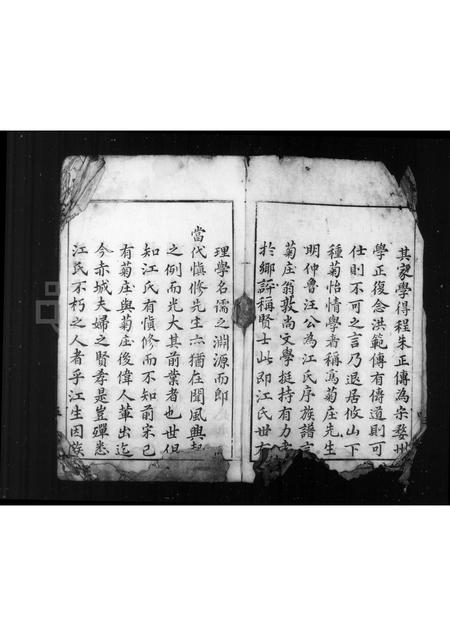 其家學得程朱正傳為宋婺州
學正復念洪範傳有傳道則可
仕則不可之言乃退居攸山下
種菊怡情學者稱為菊庄先生
明仲魯汪公為江氏序族譜言
菊庄翁敦尚文學挺持有力者
於鄉評稱賢士此即江氏世有
理學名儒之淵源而即
當代慎修先生亦猶在聞風興起
之例而光大其前業者也世但
知江氏有慎修而不知前宋已
有菊庄與菊庄後偉人華出迄
今赤城夫婦之賢孝是豈殫悉
江氏不朽之人者乎江生因族